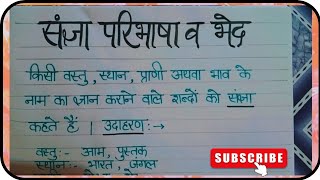 संज्ञा परिभाषा व भेद
किसी वस्तु, स्थान, प्राणी अथवा भाव के
नाम का ज्ञान कराने वाले शब्दों को संज्ञा
कहते हैं। उदाहरण:→
वस्तु:- आम, पुस्तक
स्थान:- भारत, जंगल
SUBSCRIBE